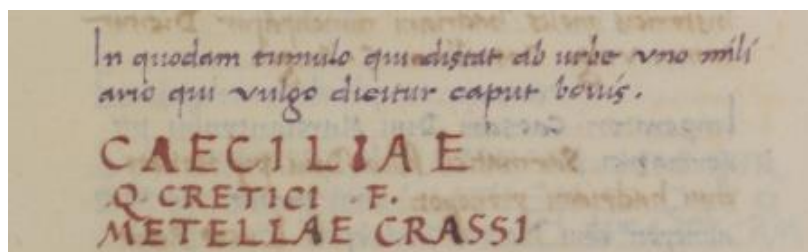 In quodam tumulo qui distat ab urbe vno mili
ario qui vulgo dicitur caput bouis.
CAECILIAE
Q CRETICI · F.
METELLAE CRASSI